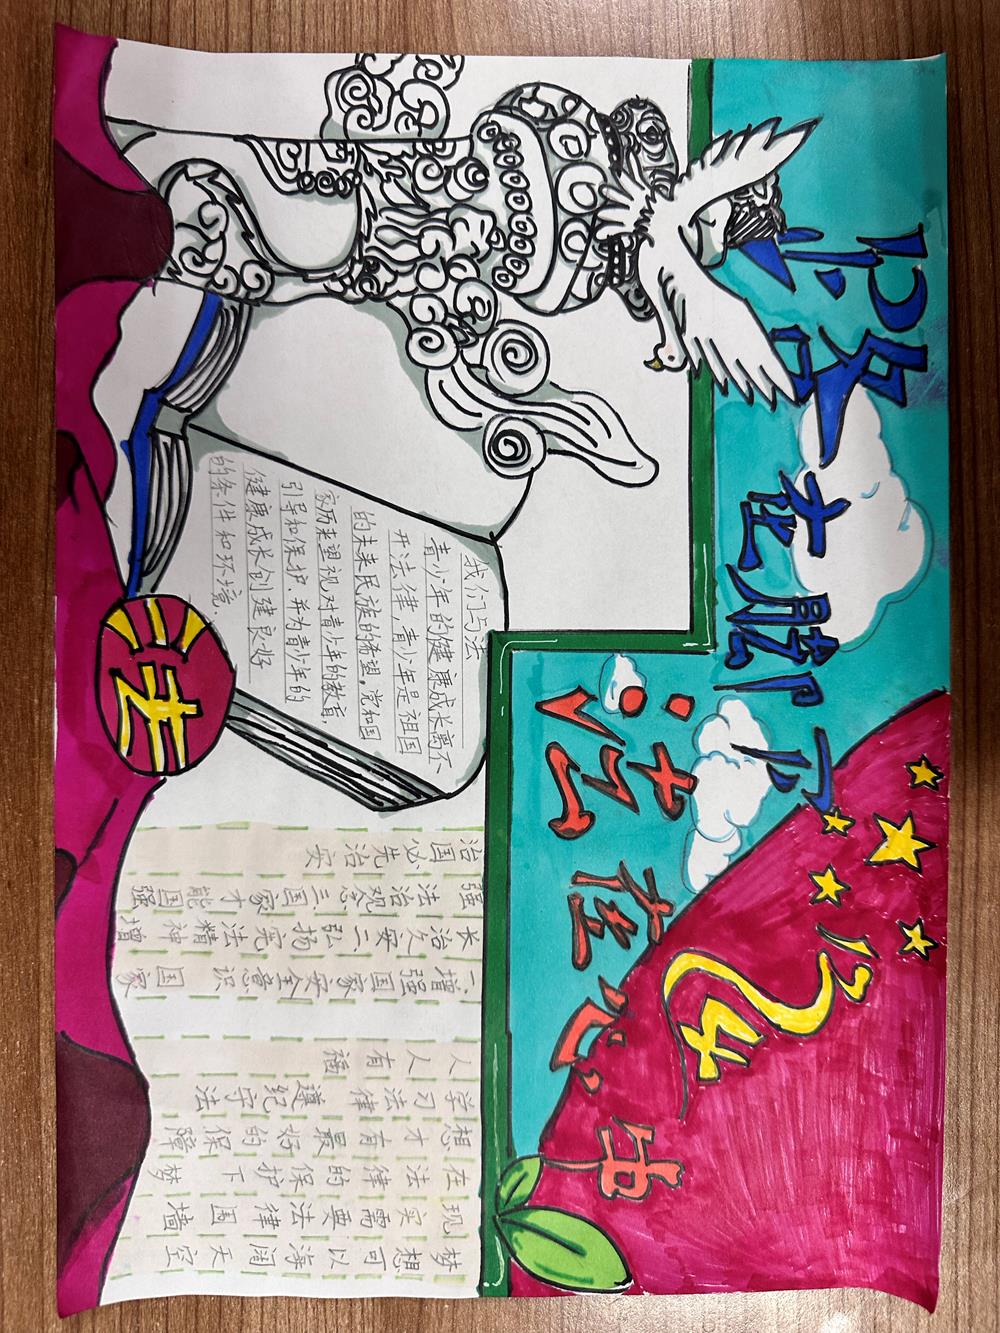 路在脚下
法在心中
我们与法
青少年的健康成长离不
开法律,青少年是祖国
的未来民族的希望。党和国
家历来重视对青少年的教育、
引导和保护、并为青少年的
健康成长创建良好
的条件和环境.
梦想可以海阔天空
现实需要法律围墙
在法律的保护下梦
想才有最好的保障
学习法律遵纪守法
人人有福
一增强国家安全意识国家
长治久安二、弘扬宪法精神增
强法治观念三国家才能国强
治国必先治实